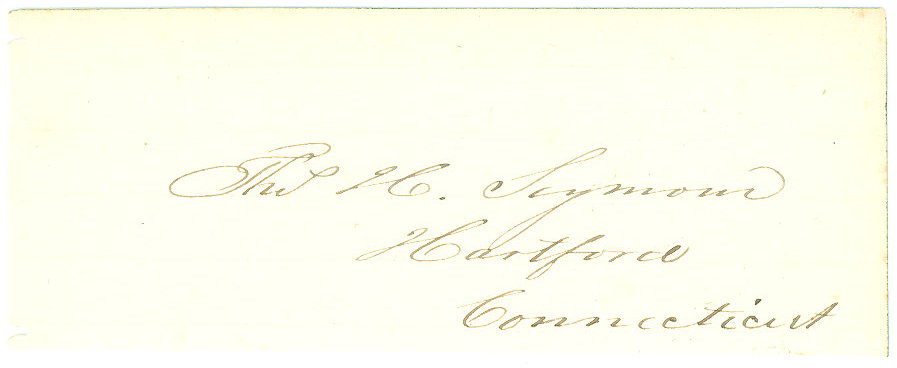 Tho.s H. Seymour
Hartford
Connecticut